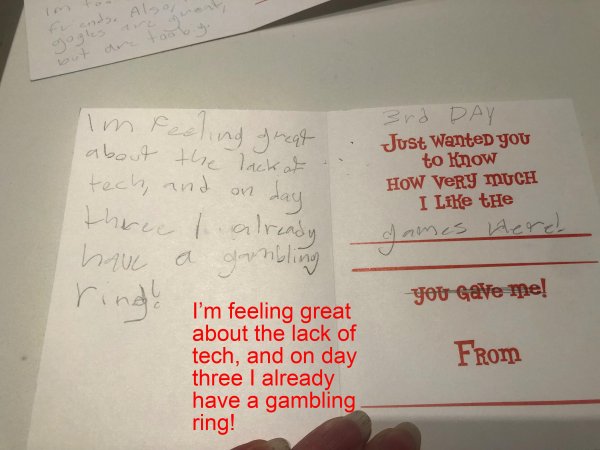 Im too
friends. Also,
gogles are great,
but are too big.
Im Feeling great
about the lack of
tech, and on day
three I already
have a gambling
ring!
I'm feeling great
about the lack of
tech, and on day
three I already
have a gambling
ring!
3rd DAY
Just Wanted you
to Know
How Very much
I Like the
games Here!
you Gave me!
From